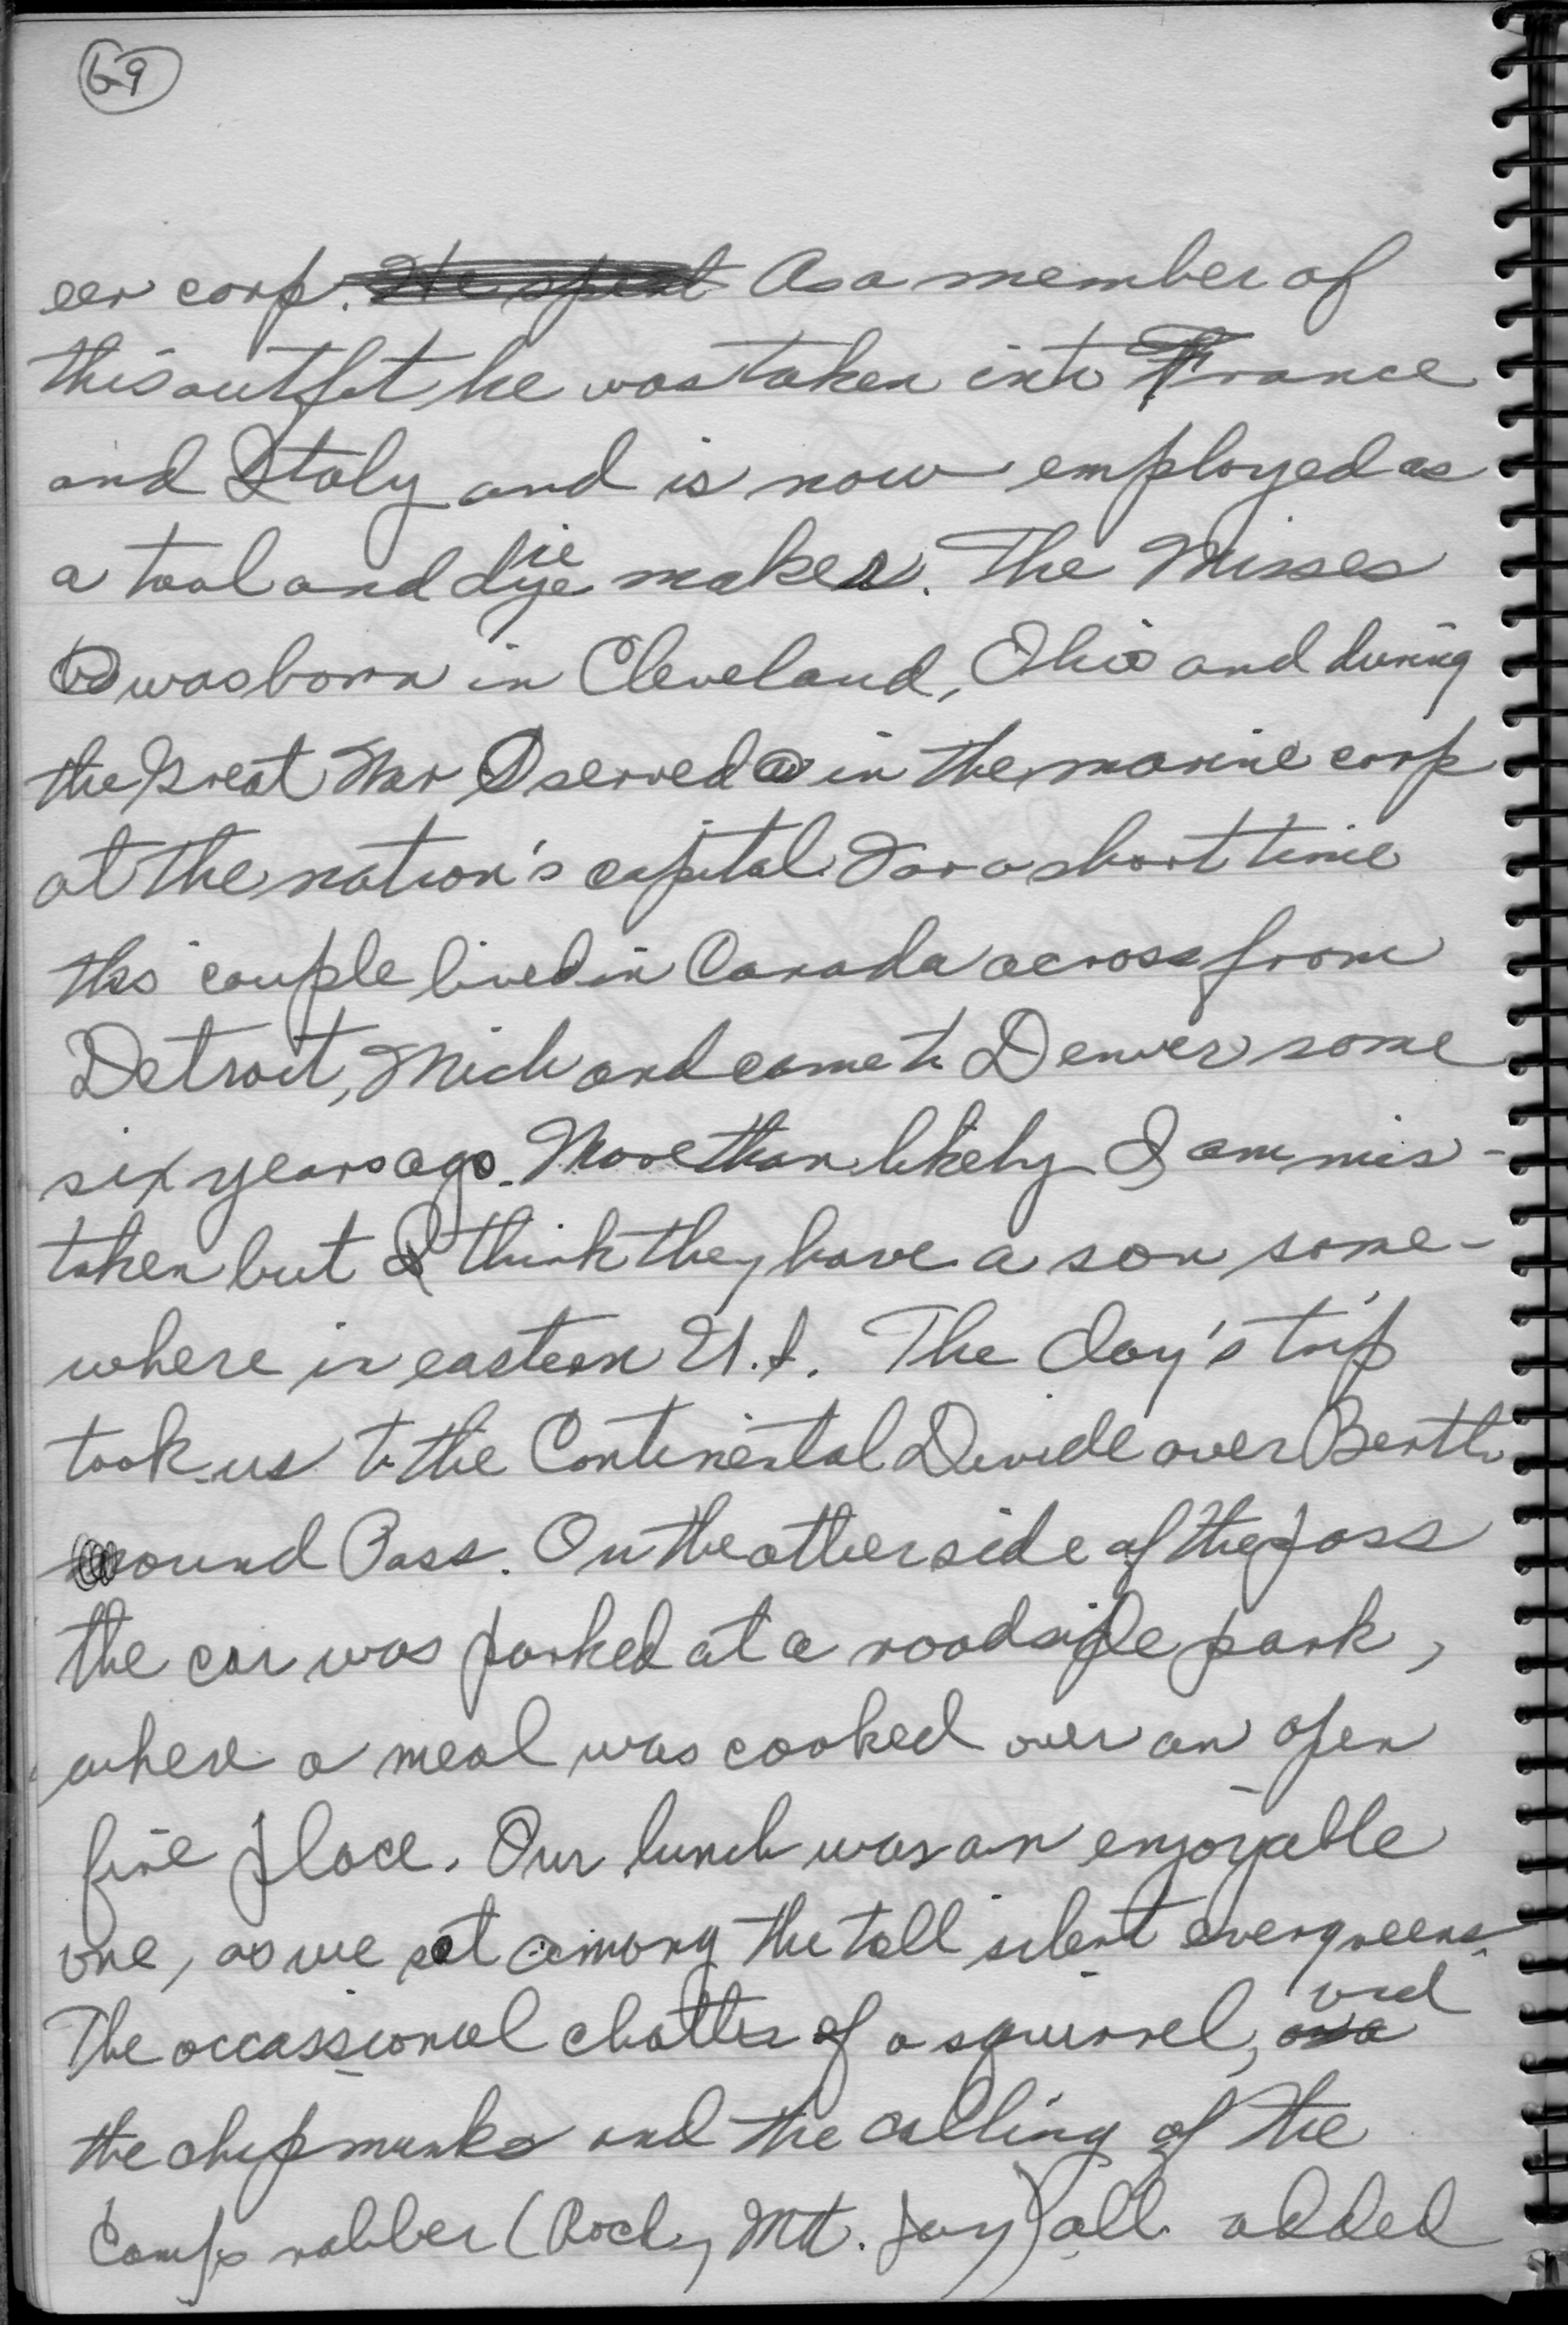 69
eer corp. He spent As a member of
this outfit he was taken into France
and Italy and is now employed as
a tool and die maker. The Misses
was born in Cleveland, Ohio and during
the Great War served in the marine corp
at the nation's capital. For a short time
this couple lived in Canada across from
Detroit, Mich and came to Denver some
six years ago. More than likely I am mis-
taken but I think they have a son some-
where in eastern U.S. The day's trip
took us to the Continental Divide over Berth
ound Pass. On the other side of the pass
the car was parked at a roadside park,
where a meal was cooked over an open
fire place. Our lunch was an enjoyable
one, as we sat among the tall silent evergreens.
The occassional chatter of a squirrel,
the chipmunks and the calling of the
Camp robber (Rocky Mt. Jay) all added